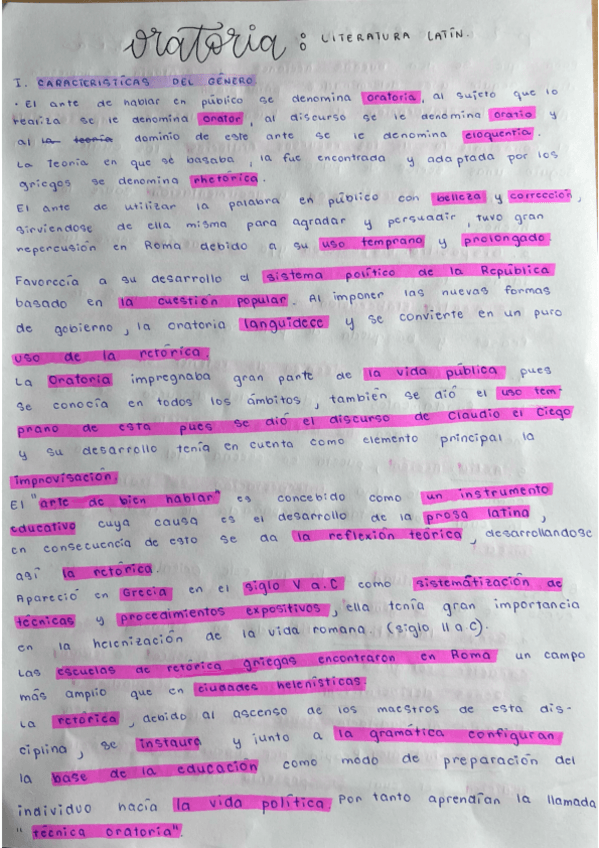 oratoria: LITERATURA LATÍN.
I. CARACTERÍSTICAS DEL GÉNERO
· El ante de hablar en público se denomina oratoria, al sujeto que lo
realiza se le denomina orator, al discurso se le denomina oratio y
al la teoría dominio de este ante se le denomina eloquentia.
La Teoría en que se basaba, la fue encontrada y adaptada por los
griegos se denomina rhetórica.
El ante de utilizar la palabra en público con belleza y corrección,
sirviendose de ella misma para agradar y persuadir, tuvo gran
repercusión en Roma debido a su uso temprano y prolongado
Favorecía a su desarrollo el sistema político de la República
basado en la cuestion popular. Al imponer las nuevas formas
de gobierno, la oratoria languidece y se convierte en un puro
uso de la retórica.
La Oratoria impregnaba gran parte de la vida pública pues
se conocía en todos los ámbitos, también se dió el uso tem-
prano de esta pues se dió el discurso de Claudio el Ciego
y su desarrollo tenía en cuenta como elemento principal la
improvisación
El "arte de bien hablar" es concebido como un instrumento
educativo cuya causa es el desarrollo de la prosa latina,
en consecuencia de esto se da la reflexión teórica, desarrollandose
así la retórica.
Apareció en Grecia en el siglo V a.C como sistematización de
técnicas y procedimientos expositivos, ella tenía gran importancia
en la helenización de la vida romana (siglo II a C).
Las escuelas de retórica griegas encontraron en Roma un campo
más amplio que en ciudades helenísticas
La retórica, debido al ascenso de los maestros de esta dis-
ciplina, se instaura y junto a la gramática configuran
la base de la educación como modo de preparación del
individuo hacía la vida política Por tanto aprendían la llamada
"técnica oratoria"